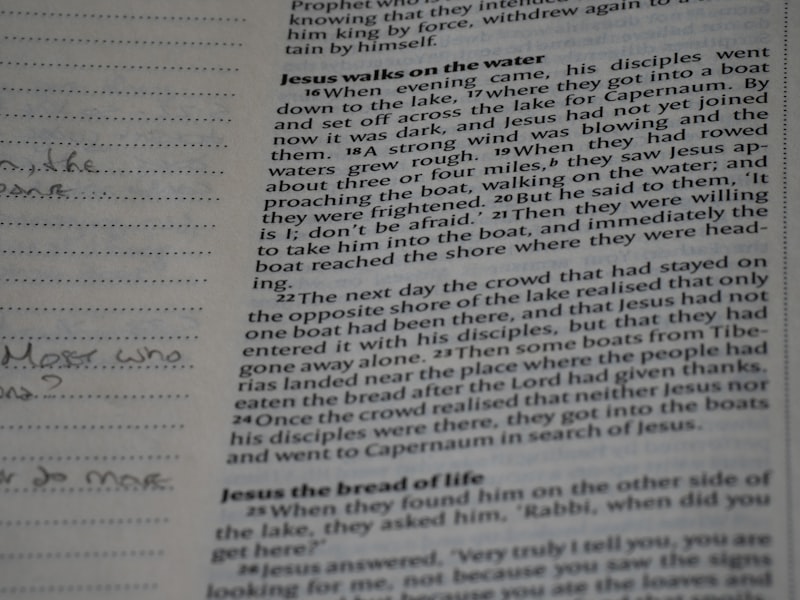 n, the
Most who
ons?
or do more
Prophet who is
knowing that they intended
him king by force, withdrew again to a
tain by himself.
Jesus walks on the water
16 When evening came, his disciples went
down to the lake, 17 where they got into a boat
and set off across the lake for Capernaum. By
now it was dark, and Jesus had not yet joined
them. 18 A strong wind was blowing and the
waters grew rough. 19 When they had rowed
about three or four miles,b they saw Jesus ap-
proaching the boat, walking on the water; and
they were frightened. 20 But he said to them, ‘It
is I; don’t be afraid.’ 21 Then they were willing
to take him into the boat, and immediately the
boat reached the shore where they were head-
ing.
22 The next day the crowd that had stayed on
the opposite shore of the lake realised that only
one boat had been there, and that Jesus had not
entered it with his disciples, but that they had
gone away alone. 23 Then some boats from Tibe-
rias landed near the place where the people had
eaten the bread after the Lord had given thanks.
24 Once the crowd realised that neither Jesus nor
his disciples were there, they got into the boats
and went to Capernaum in search of Jesus.
Jesus the bread of life
25 When they found him on the other side of
the lake, they asked him, ‘Rabbi, when did you
get here?’
26 Jesus answered, ‘Very truly I tell you, you are
looking for me, not because you saw the signs
because you ate the loaves and